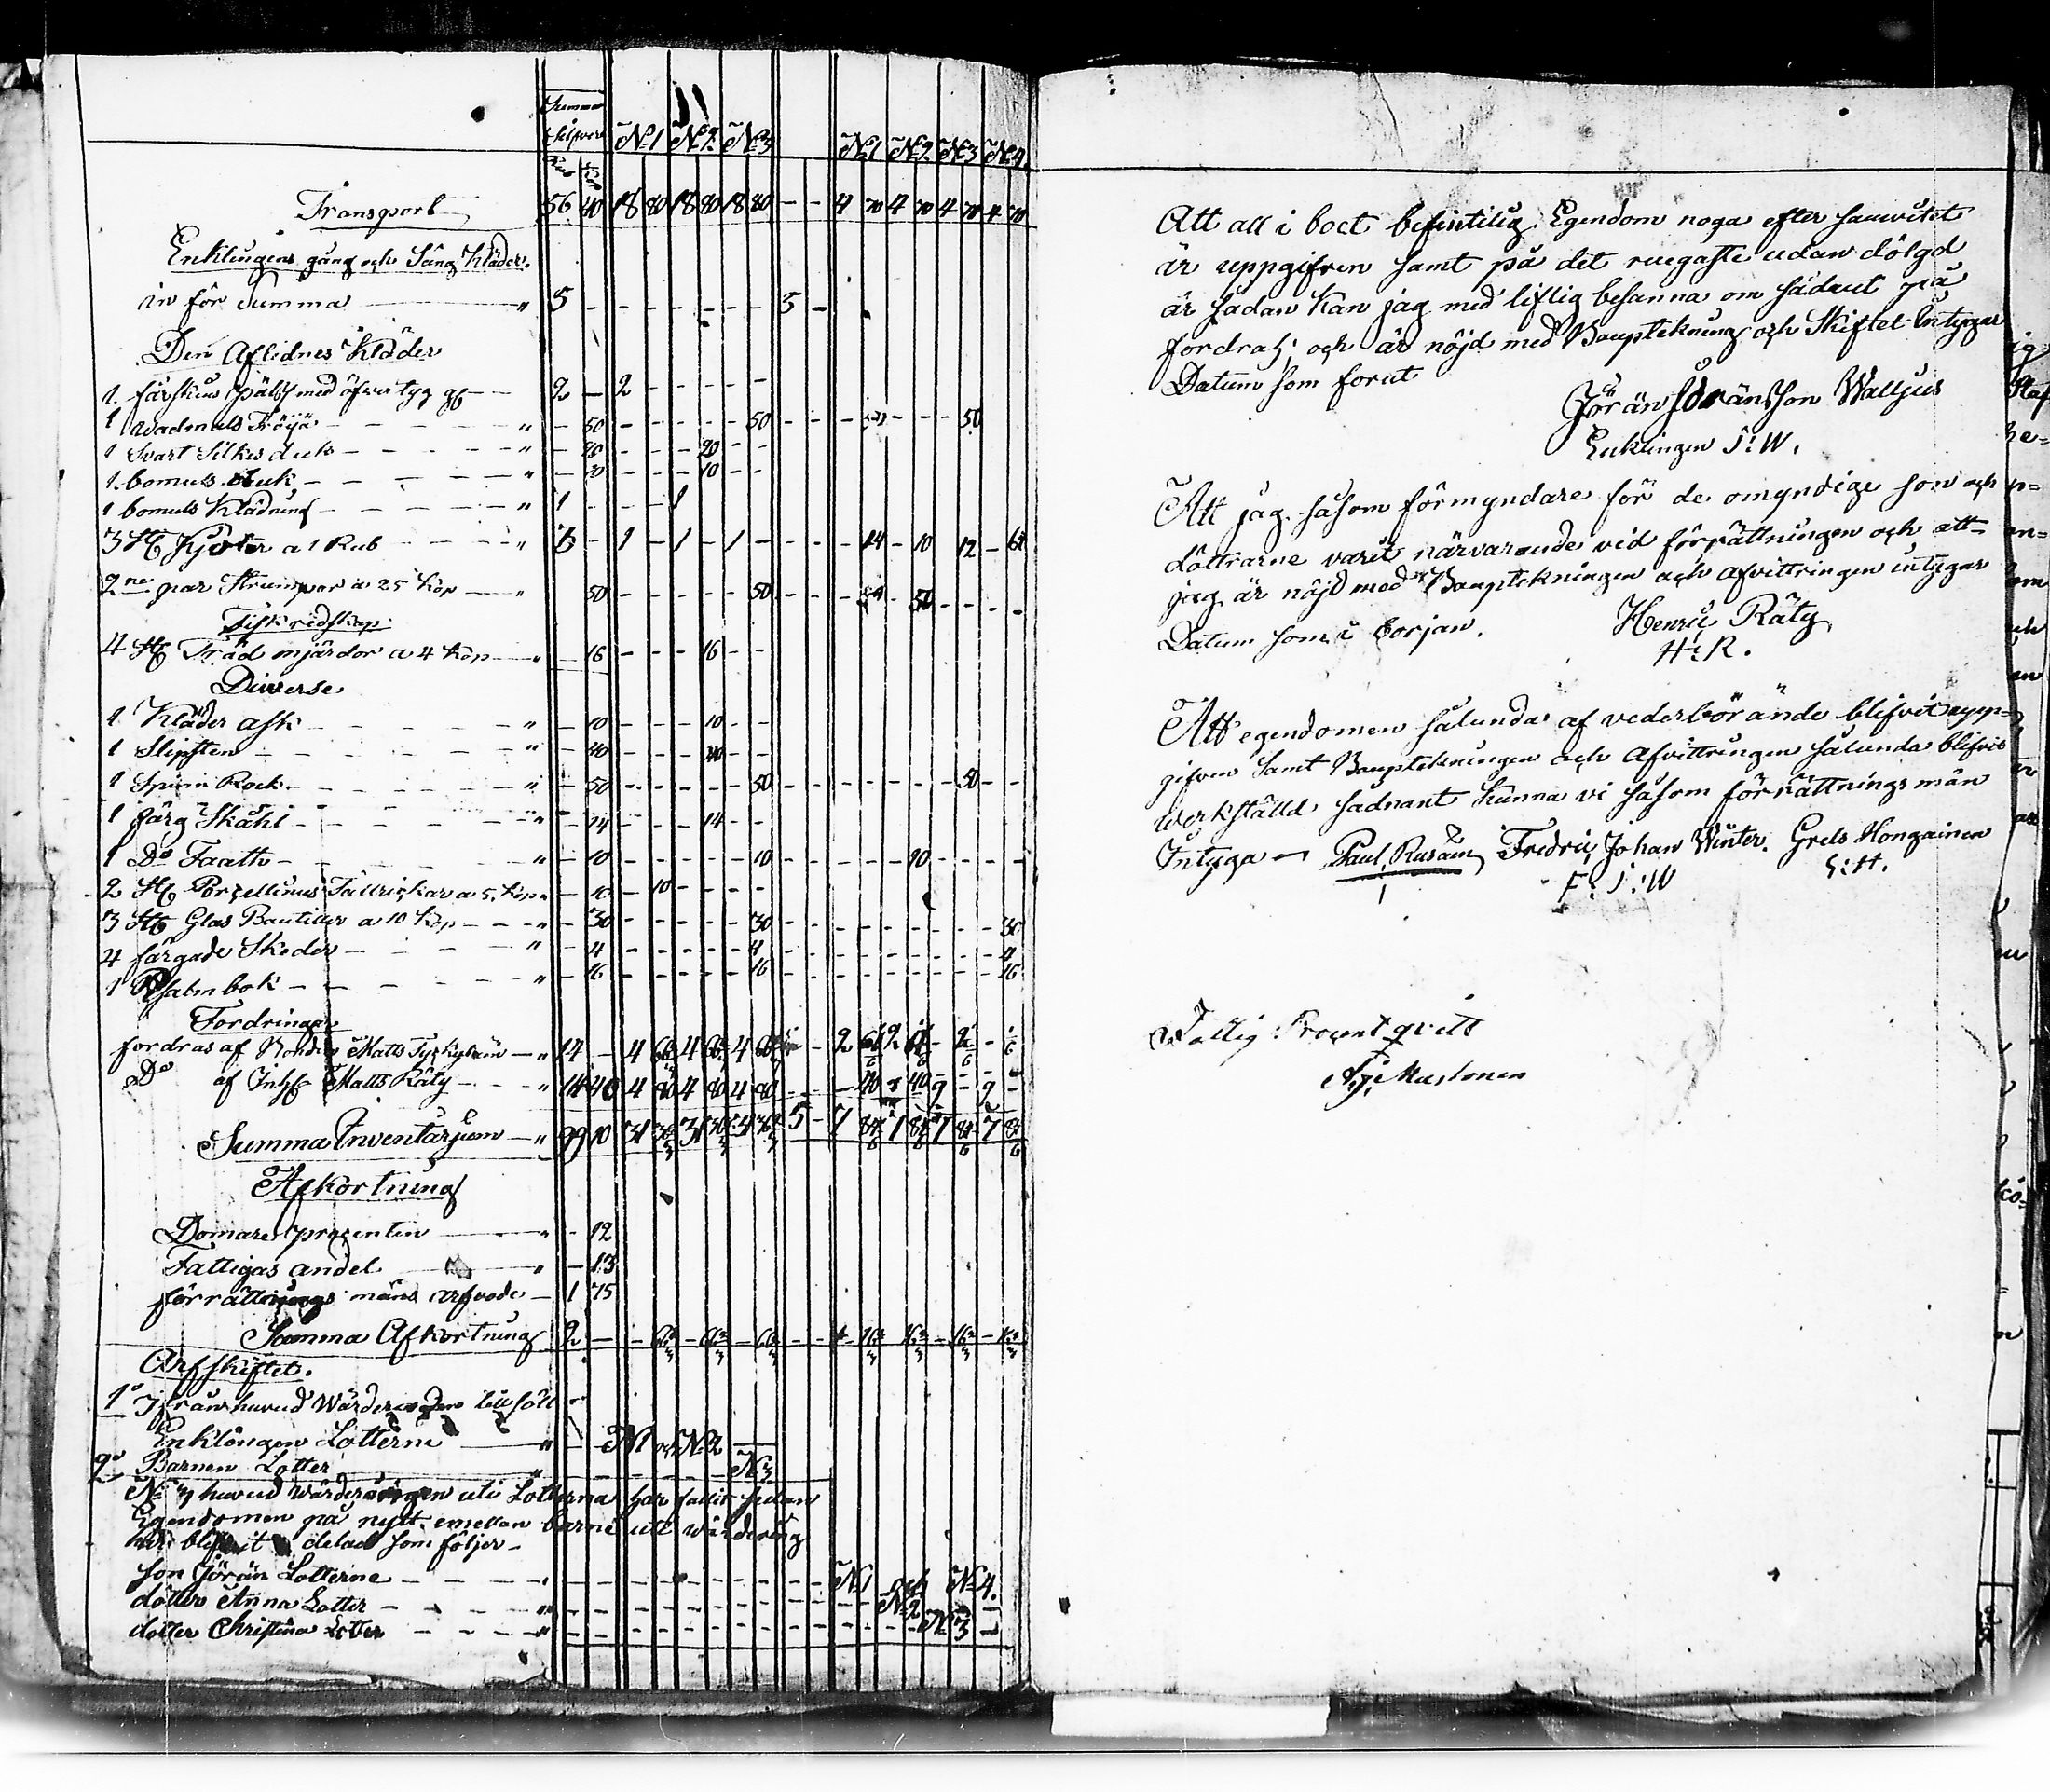 Summa
Silfver
N:1 N:2 N:3 N:1 N:2 N:3 N:4
Transport 56 40 18 80 18 80 18 80 - - 4 70 4 70 4 70 4 70
Enklingens gång och Säng Kläder.
in för Summa " 5 - - - - - - - 5 -
Den Aflidnes Kläder
1 fårskins päls med öfver tyg 2 - 2 - - - - -
1 wadmals Tröija " - 50 - - - - - 50 - - - - - - 50
1 Svart Silkes duk " - 20 - - - 20 - -
1 bomuls duk " - 10 - - - 10 - -
1 bomuls Klädning " 1 - - - 1
3 St Kjortlar a 1 Rub " 3 - 1 - 1 - 1 - - - - 24 - 10 12 - 64
2ne par Strumpor a 25 kop " 50 - - - - - 50 - - - - 50 - - - -
Fiskredskap
4 St Träd mjärdor a 4 kop " - 16 - - - 16 - -
Diverse
1 Kläder ask " - 10 - - - 10 - -
1 Slipsten " - 40 - - - 40 - -
1 Spinn Rock " - 50 - - - - - 50 - - - - - - - 50 - -
1 färg Skåhl " - 14 - - - 14 - -
1 Do Faath " - 10 - - - - - 10 - - - - - 10 - - - -
2 St Porcellinus Tallrickar a 5 kop " - 10 - 10 - - - -
3 St Glas Bautiller a 10 kop " - 30 - - - - - 30 - - - - - - - - - 30
4 färgade Skeder " - 4 - - - - - 4 - - - - - - - - - 4
1 Psalmbok " - 16 - - - - - 16 - - - - - - - - - 16
Fordringar
fordras af Matts " 14 - 4 66 4 66 4 66
Do af Inh Matts Räty " 14 40 4 80 4 80 4 80 - - - 40 - 40 9 - 9 -
Summa Inventarium " 99 10 31 36 31 36 31 36 5 - 7 84 7 84 7 84 7 84
Afkortning
Domare procenten " - 12
Fattigas andel " - 13
förrättnings mäns arfvode 1 75
Summa Afkortning 2 - - 66 - 66 - 66 - - - 16 - 16 - 16 - 16
Arfskiftet.
1o huvud Wärderingen tillföll
Enklingen Lotterne " - - N:1 och N:2
2o Barnen Lotter " - - - - - - N:3
N: 3 huvud wärderingen uti Lotterna har fallit sedan
Egendomen på nytt emellan barne uti wärdering
här blifvit delad som följer
Son Jöran Lotterne N:1 och N:4.
dotter Anna Lotter " N:2
dotter Christina Lotter " N:3
Att all i boet befintelig Egendom noga efter samvetet
är uppgifven samt på det ringaste udan dölgd
är sådan kan jag med liflig besanna om sådant på
fordras; och är nöjd med Bouptekning och Skiftet Intygar
Datum som forut
Jörän Göränsson Walljus
Enklingen J:W.
Att jag såsom förmyndare för de omyndige son och
döttrarne varit närvarande vid förrättningen och att
jag är nöjd med Bouptekningen och afvittringen intygar
Datum som i borjan.
Henric Räty
H:R.
Att egendomen sålunda af vederbörände blifvit upp-
gifven samt Bouptekningen och afvittringen sålunda blifvit
werkställd sådnant kunna vi såsom förrättnings män
Intyga Paul Fredric Johan Winter. Grels Hongainen
F:J:W G:H.
Fattig Procent qvitt
Mustonen